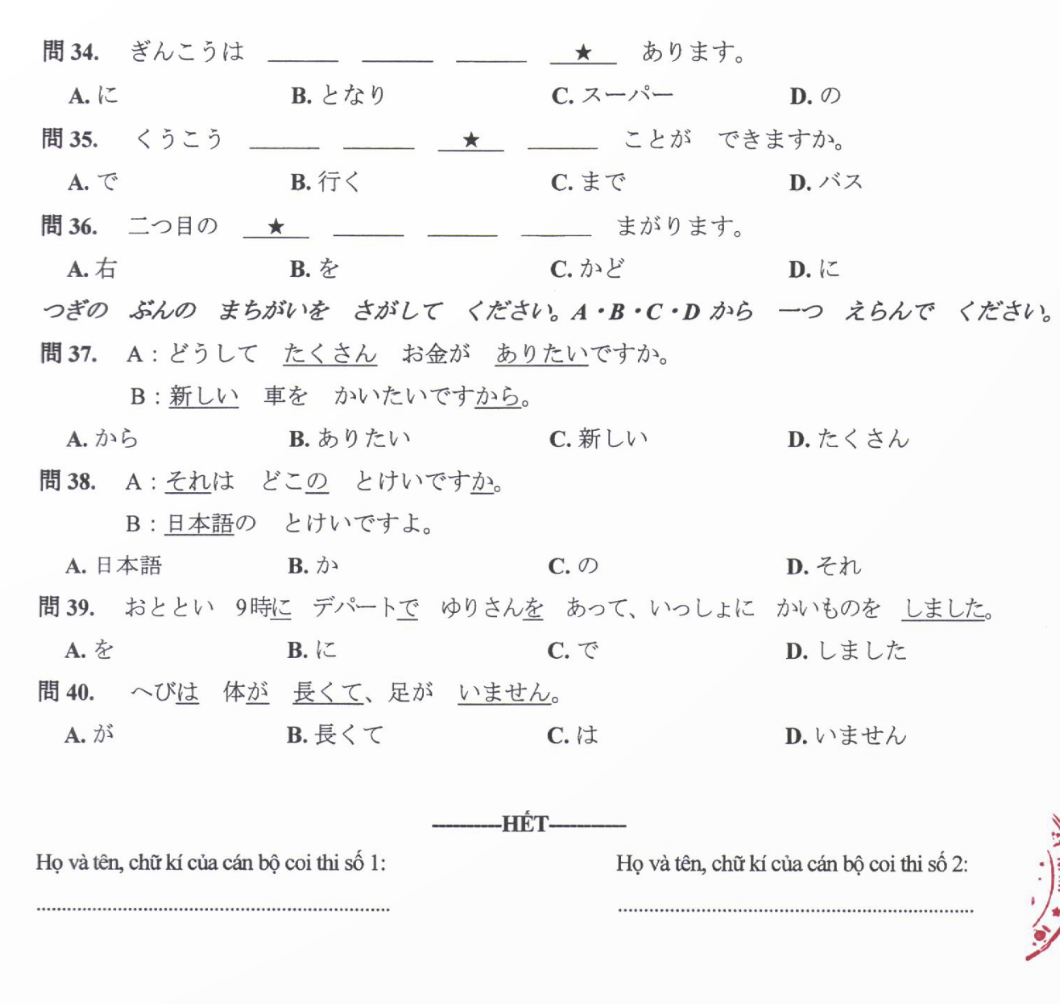 問 34. ぎんこうは ______ ______ ______ ___★___ あります。
A. に B. となり C. スーパー D. の
問 35. くうこう ______ ______ ___★___ ______ ことが できますか。
A. で B. 行く C. まで D. バス
問 36. 二つ目の ___★___ ______ ______ ______ まがります。
A. 右 B. を C. かど D. に
つぎの ぶんの まちがいを さがして ください。A・B・C・D から 一つ えらんで ください。
問 37. A : どうして たくさん お金が ありたいですか。
B : 新しい 車を かいたいですから。
A. から B. ありたい C. 新しい D. たくさん
問 38. A : それは どこの とけいですか。
B : 日本語の とけいですよ。
A. 日本語 B. か C. の D. それ
問 39. おととい 9時に デパートで ゆりさんを あって、いっしょに かいものを しました。
A. を B. に C. で D. しました
問 40. へびは 体が 長くて、足が いません。
A. が B. 長くて C. は D. いません
----------HẾT-----------
Họ và tên, chữ kí của cán bộ coi thi số 1: Họ và tên, chữ kí của cán bộ coi thi số 2: